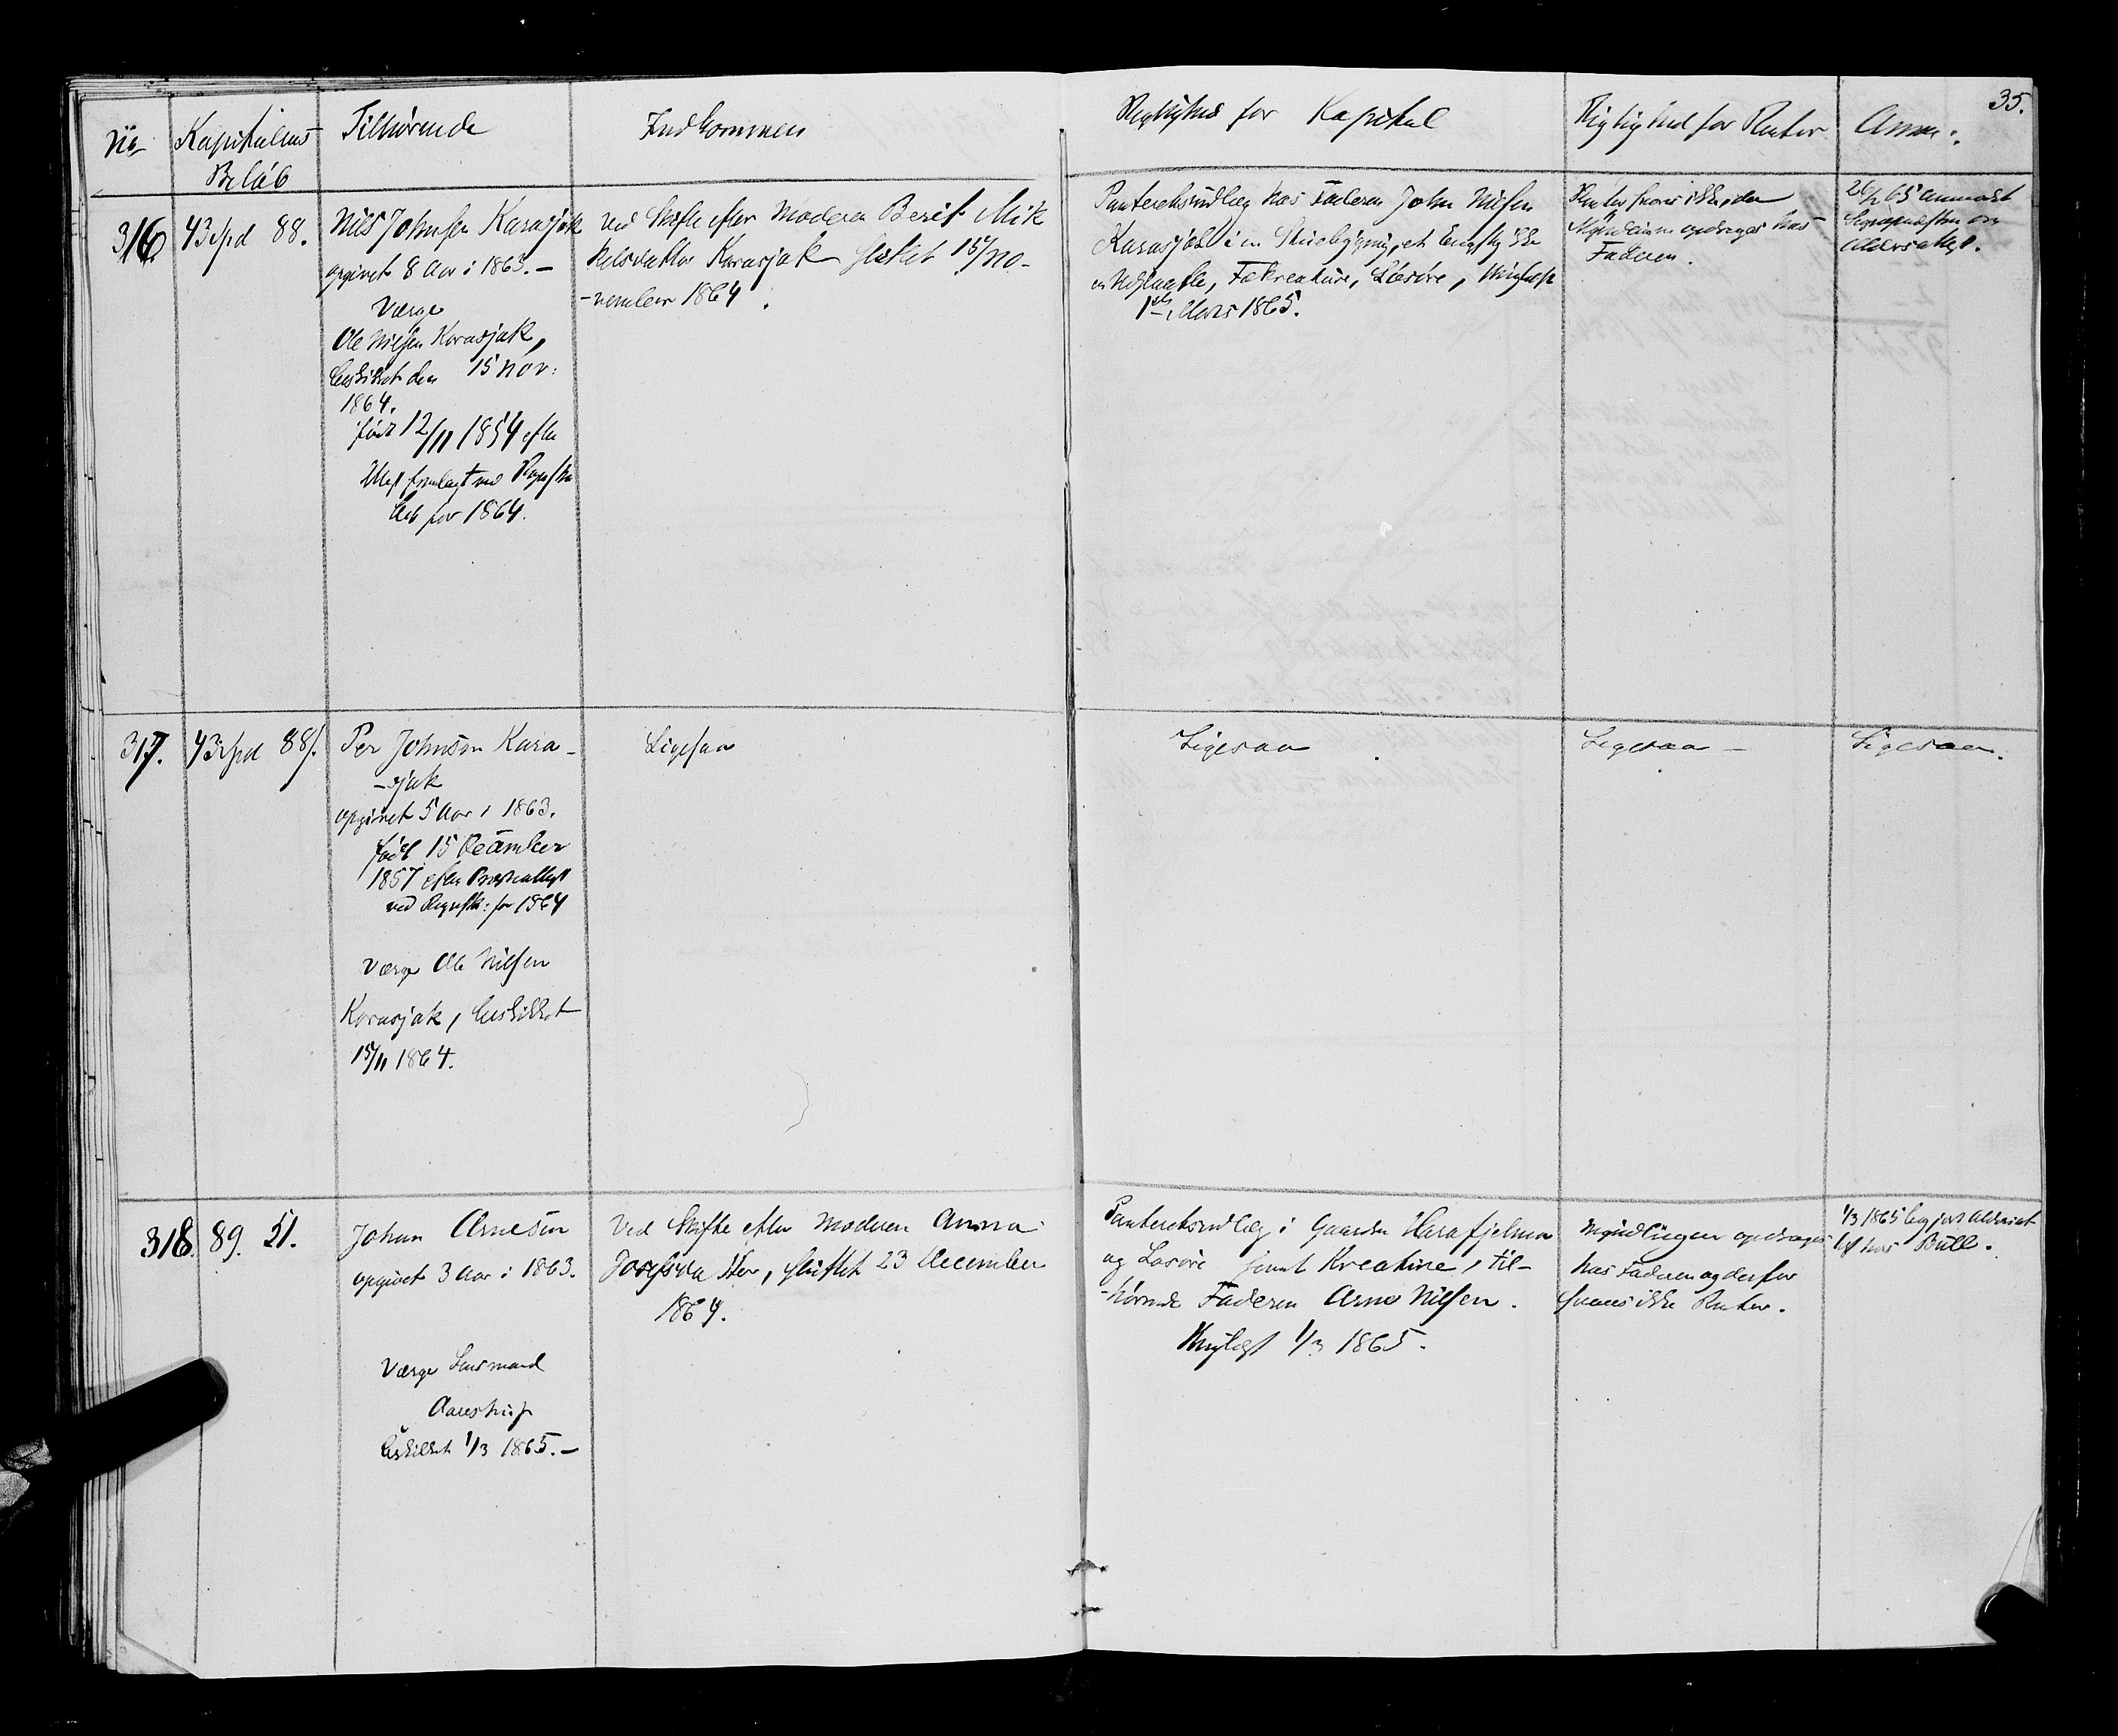 35.
No
Kapitalens
Beløb
Tilhørende
Indkommen
Rigtighed for Kapital
Rigtighed for Renter
Anm:
316
43 spd 88.
Nils Johnsen Karasjok
opgivet 8 Aar i 1863. –
Værge
Ole Nilsen Karasjok,
beskikket den 15 Nov:
1864.
født 12/11 1854 efter
Attest fremlagt ved
for 1864.
Ved Skifte efter Moderen Berit Mik
kelsdatter Karasjok sluttet 15/ No-
-vember 1864.
Panteretsudlæg hos Faderen John Nilsen
Karasjok i en Stuebygning, et Engstykke
Fækreature, Løsøre,
1ste Marts 1865.
Renter svares ikke, da
Myndlingen opdrages hos
Faderen.
65 anmodet
Sognepræsten om
Aldersattest.
317.
43 spd 88 s.
Per Johnsen Kara-
-sjok
opgivet 5 Aar i 1863.
født 15 December
1857 efter Præsteattest
ved Regnsk: for 1864
Værge Ole Nilsen
Karasjok, beskikket
15/11 1864.
Ligesaa
Ligesaa
Ligesaa –
Ligesaa.
318.
89. 51.
Johan Arnesen
opgivet 3 Aar i 1863.
Værge Lensmand
Aarestrup
beskikket 1/3 1865. –
Ved Skifte efter Moderen Anna
Josefsdatter, sluttet 23 December
1864.
Panteretsudlæg i Gaarden
og Løsøre samt Kreature, til-
-hørende Faderen Arne Nilsen.
1/3 1865.
Myndlingen opdrages
hos Faderen og derfor
svares ikke Renter.
1/3 1865 begjært Aldersat-
test hos Bull.